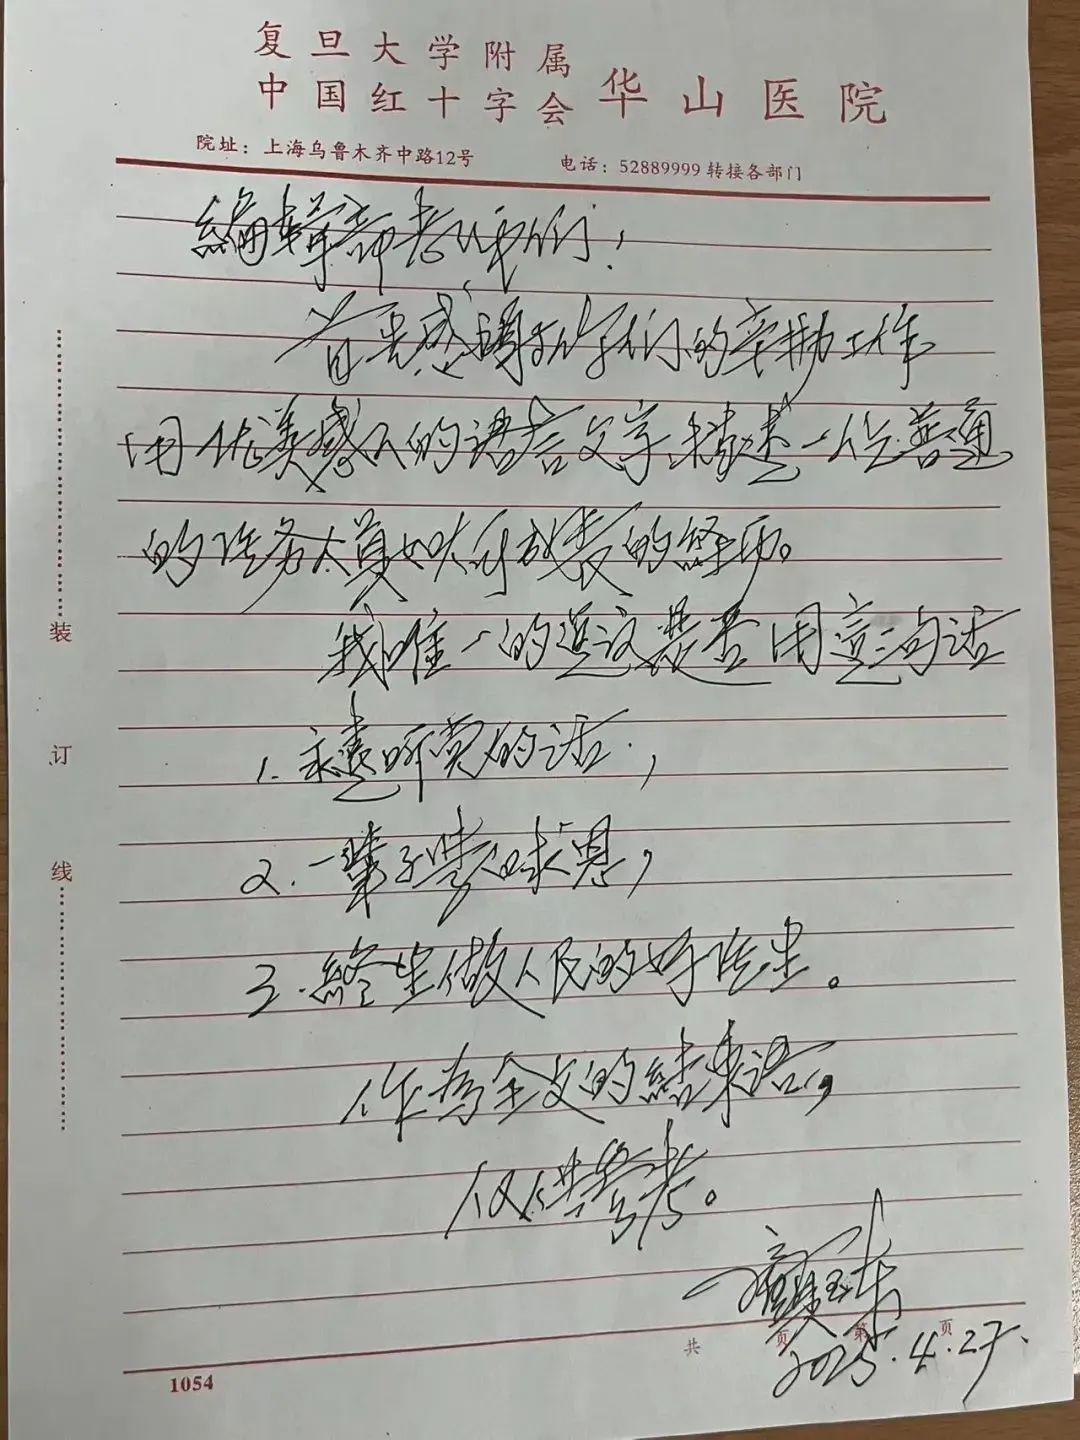 复旦大学附属
中国红十字会 华山医院
院址：上海乌鲁木齐中路12号 电话：52889999 转接各部门
编辑部老师们！
首先感谢你们的辛勤工作
用优美感人的语言文字，描述一位普通
的医务人员如大年放表的经历。
我唯一的建议是否用這三句话
1. 永远听党的话，
2. 一辈子学白求恩，
3. 終生做人民的好医生。
作为全文的結束语，
仅供参考。
2025.4.27.
装
订
线
共 页 第 页
1054